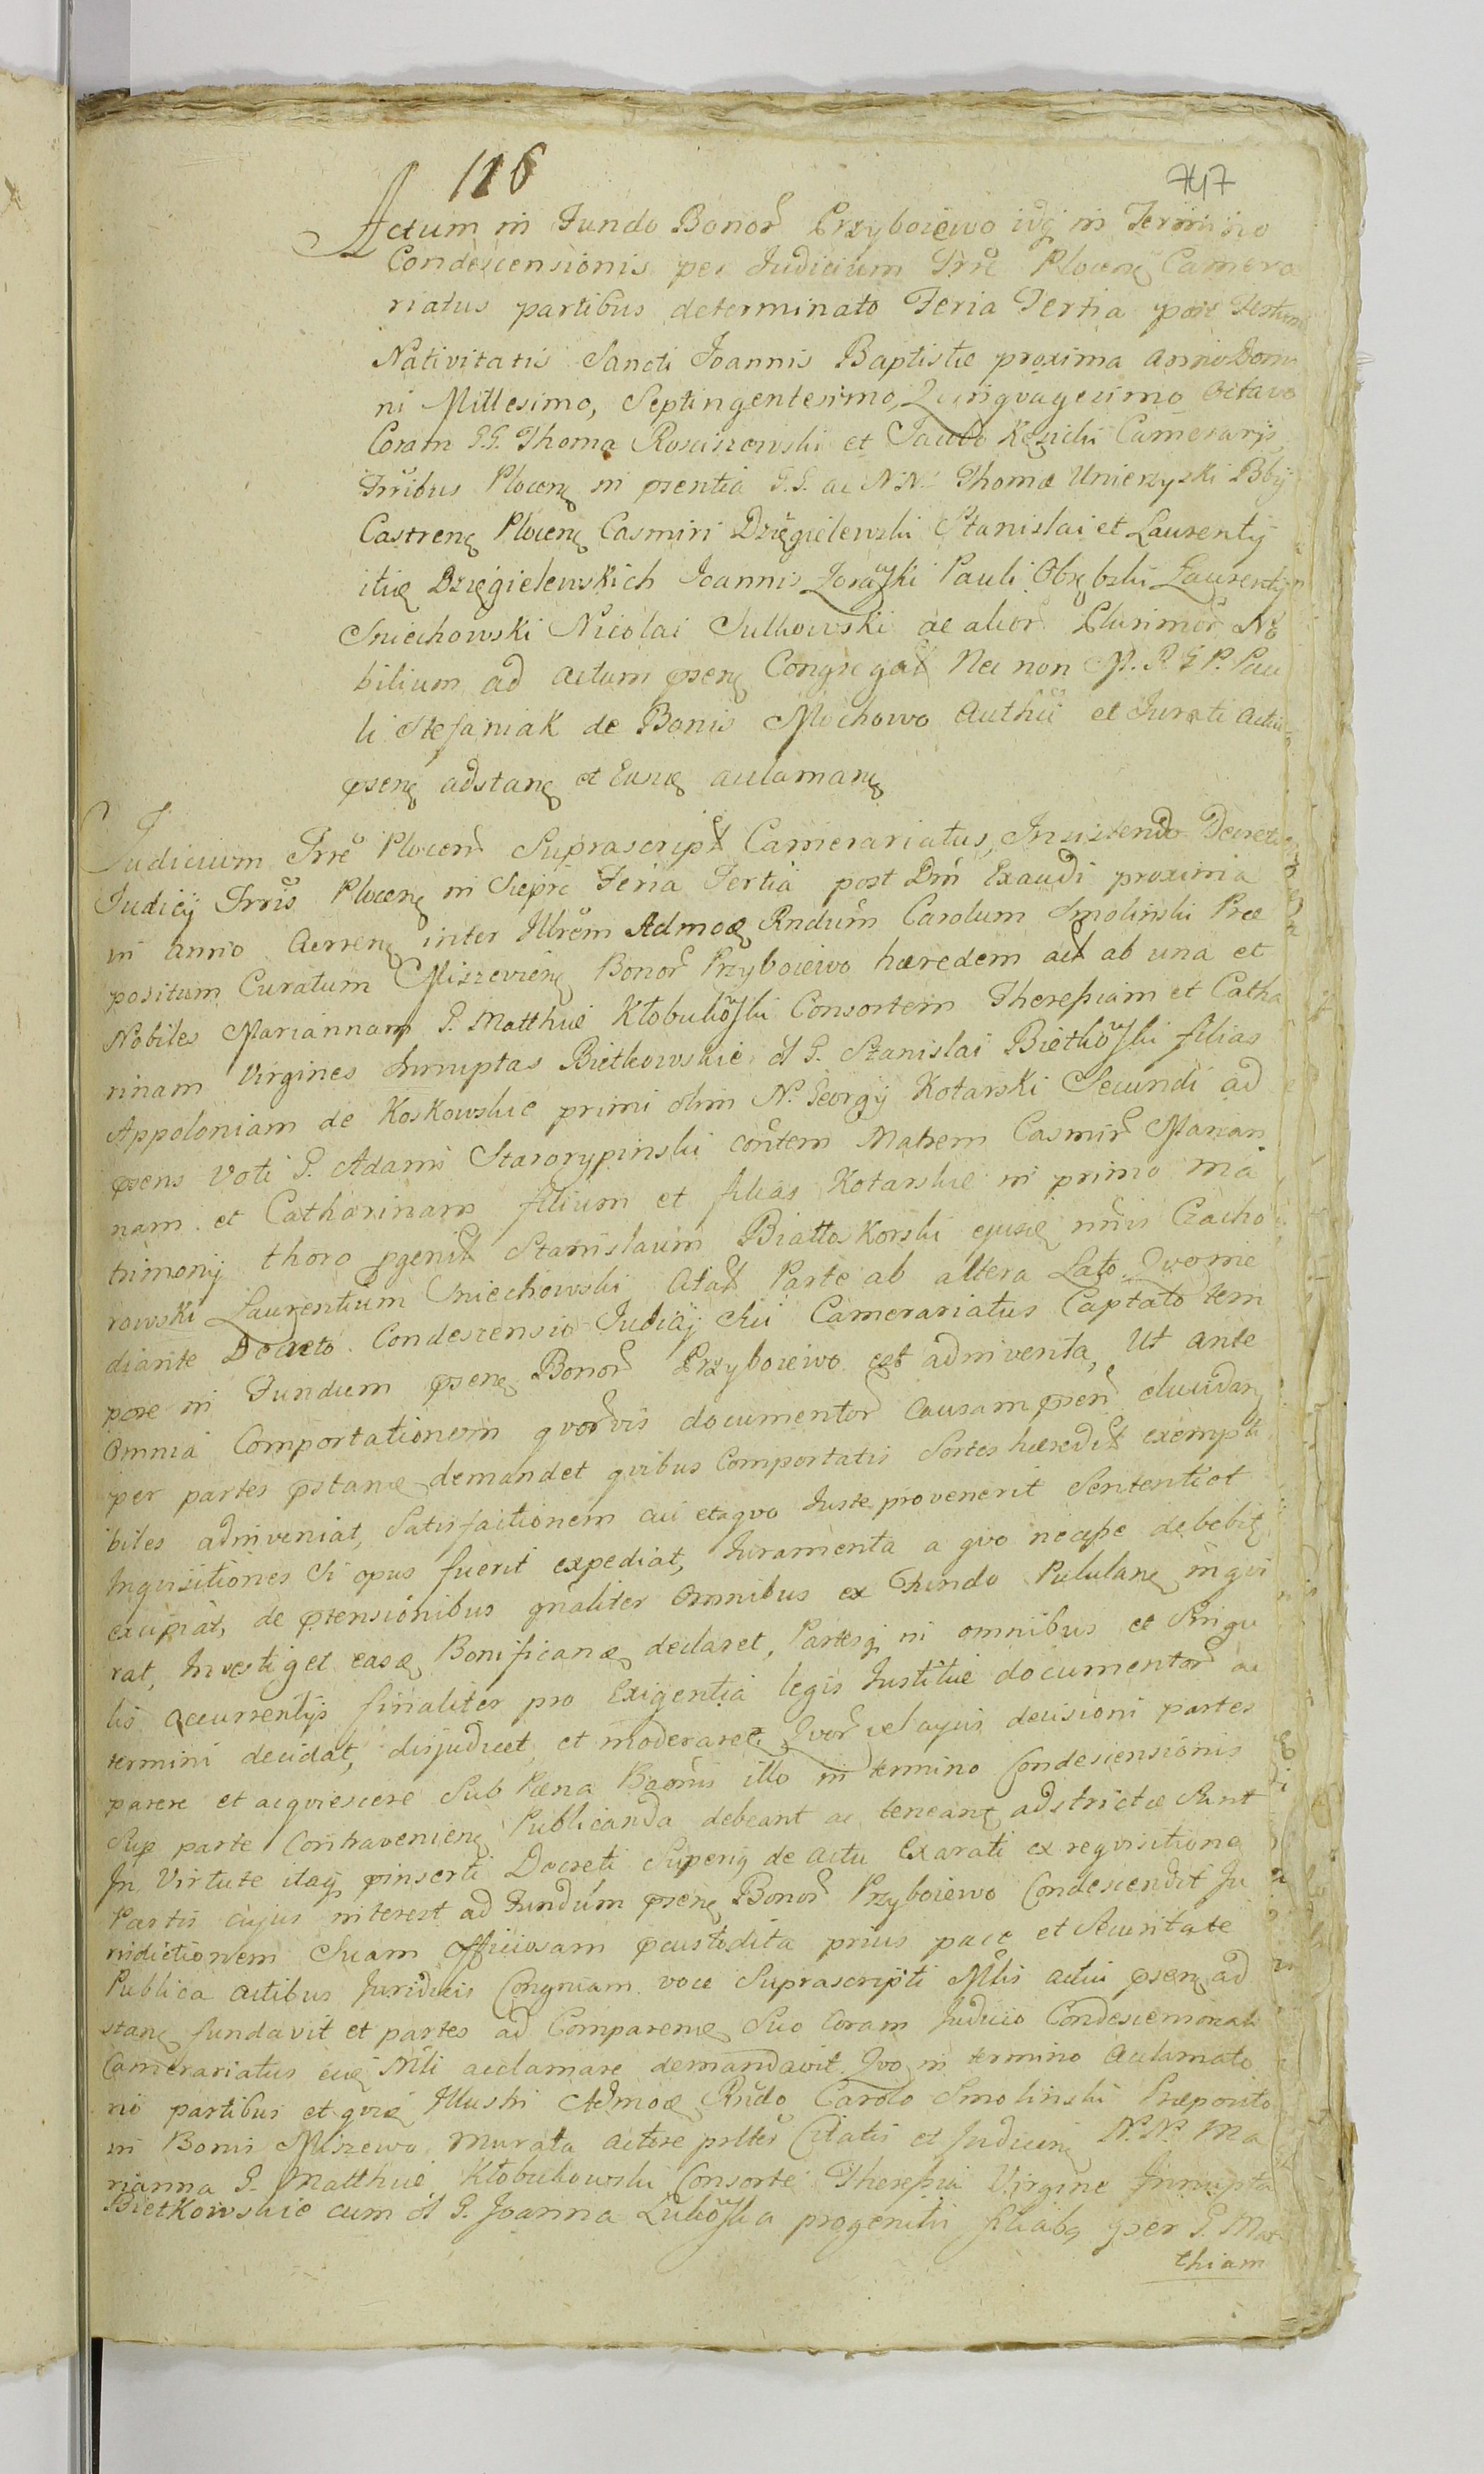 116
747
Actum in Fundo Bonor Przyboiewo idq in Termino
Condescensionis per Judicium Trre Plocen Camera
riatus partibus determinato Feria Tertia post Festum
Nativitatis Sancti Joannis Baptistæ proxima Anno Domi
ni Millesimo, Septingentesimo, Quinqvagesimo Octavo
Coram G.G. Thoma Rosciszewski et Jacobo Kęsicki Camerarijs
Trribus Plocen in psentia G.G. ac N.N. Thomæ Unierzyski Bbij
Castren Plocen Casmiri Dzięgielewski Stanislai et Laurentij
itid Dzięgielewskich Joannis Pauli Obrębski Laurentij
Sniechowski Nicolai Sulkowski ac alior Plurimor No
bilium ad actum psen Congregat Nec non M. R. G. P. Pau
li Stefaniak de Bonis Mochowo Authci et Jurati Actui
psen adstan et Eund aclaman
Judicium Trre Plocen Suprascript Camerariatus, Insistendo Decreto
Judicij Trris Plocen in Sierpc Feria Tertia post Dm Exaudi proxima
in anno Acrren inter Illrem Admod Rndum Carolum Smolinski Præ
positum Curatum Miszevien Bonor Przyboiewo hæredem act ab una et
Nobiles Mariannam G. Matthiæ Kłobukowski Consortem Theressiam et Catha
rinam Virgines Innuptas Bietkowskie ol G. Stanislai Bietkowski filias
Appoloniam de Koskowskie primi olim N. Georgij Kotarski Secundi ad
psens voti G. Adami Starorypinski contem Matrem Casmir Marian
nam et Catharinam filium et filias Kotarskie in primo Ma
trimonij thoro pgenit Stanislaum Biattoskorski ejusd nris Czacho
rowski Laurentium Sniechowski Citat Parte ab altera Lato Qvo me
diante Decreto Condescensio Judicij Sui Camerariatus Captato tem
pore in Fundum psen Bonor Przyboiewo est adinventa, Ut ante
Omnia Comportationem qvorvis documentor Causam psen elucidan
per partes pstand demandet qvibus Comportatis Sortes hæredit exempti
biles adinveniat, Satisfactionem cui et a qvo Juste provenerit Sententiet
Inqvisitiones Si opus fuerit expediat, Juramenta a qvo necesse debebit
excipiat, de ptensionibus gnaliter omnibus ex Fundo Pululan inqvi
rat, Investiget easd Bonificand declaret, Partesq in omnibus et Singu
lis accurrentijs finaliter pro Exigentia legis Justitiæ documentor ac
termini decidat, disjudicet et moderaret Qvor vel cujus decisioni partes
parere et acqviescere Sub Pæna Baonis illo in termino Condescensionis
Sup parte Contravenien Publicanda debeant ac teneant adstrictæ Sunt
In Virtute itaq pinserti Decreti Superiq de actu Exarati ex reqvisitione
Partis cujus interest ad Fundum psen Bonor Przyboiewo Condescendit Ju
risdictionem Suam Officiosam pcustodita prius pace et Securitate
Publica actibus Juridicis Congruam voce Suprascripti Mlis actui psen ad
stan fundavit et partes ad Comparend Suo Coram Judicio Condescensionali
Camerariatus eid Mli acclamare demandavit. Qvo in termino Aclamato
rio partibus et qvid Illustri Admod Rndo Carolo Smolinski Præposito
in Bonis Miszewo Murata actore Citatis et N.N. Ma
rianna G. Matthiæ Kłobukowski Consorte Theressia Virgine Innupta
Bietkowskie cum ol G. Joanna progenitis filiabq per G. Mat
thiam